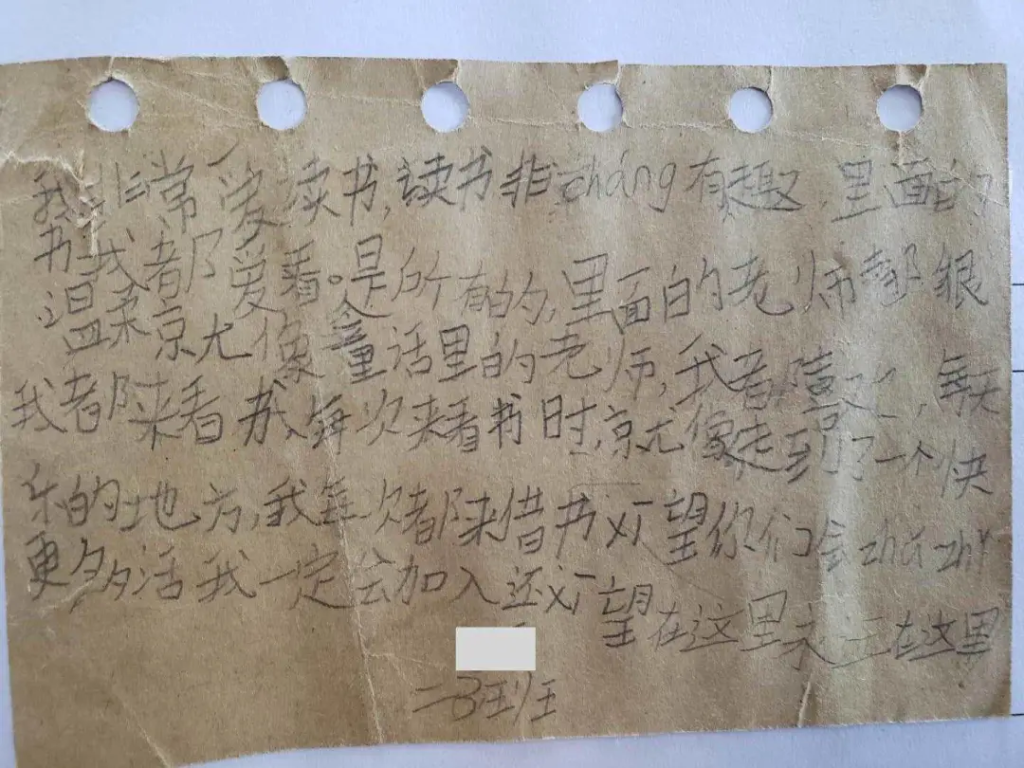 我非常爱读书,读书非cháng有趣,里面的
书我都爱看。是所有的,里面的老师都很
温柔就像童话里的老师,我都喜欢,每天
我都来看书,每次来看书时,就像走到了一个快
乐的地方,我每次都来借书 希望你们会zhǔ zhī
更多多活我一定会加入还希望在这里永远在这里
二3班